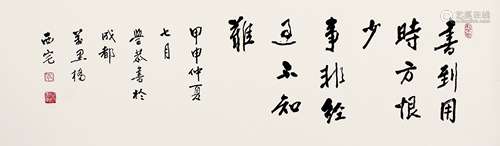 書到用
時方恨
少
事非經
過不知
難
甲申仲夏
七月
書於
成都
萬里橋
西宅